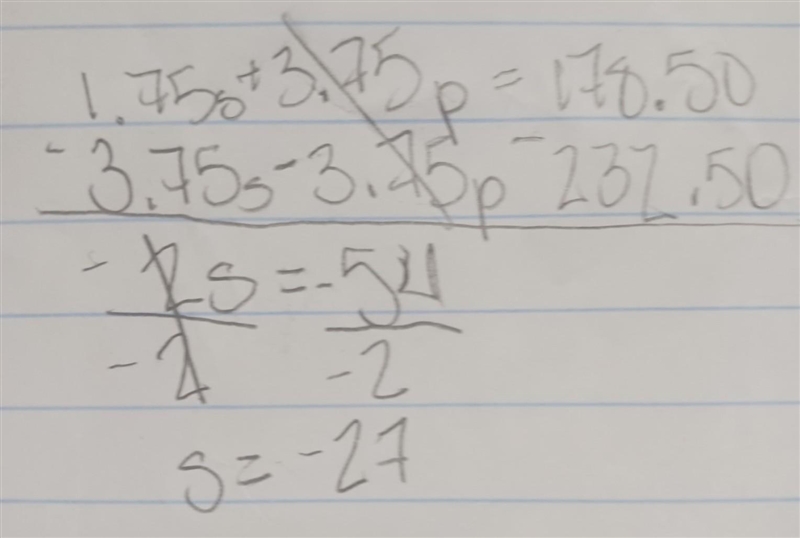 1.75s+3.75p = 178.50
-3.75s-3.75p -232.50
-2s = -54
-2 -2
s = -27